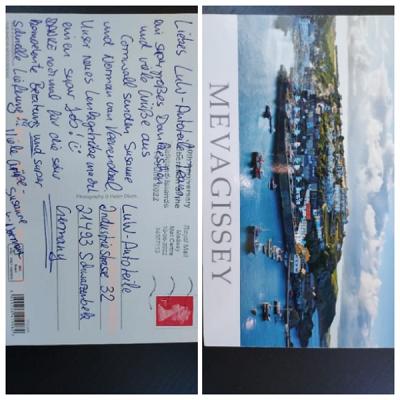 Liebes LuW-Autoteile Team,
ein super großes Dankeschön
und viele Grüße aus
Cornwall senden Susanne
und Norman van
Unser neues Lenkgetriebe macht
einen super Job!
DANKE nochmal für die sehr
kompetente Beratung und super
schnelle Lieferung!
Viele Grüße Susanne
Anniversary
Royal Mail
Medway
Mail Centre
LuW Autoteile
Industriestrasse 32
21493 Schwarzenbek
Germany
MEVAGISSEY